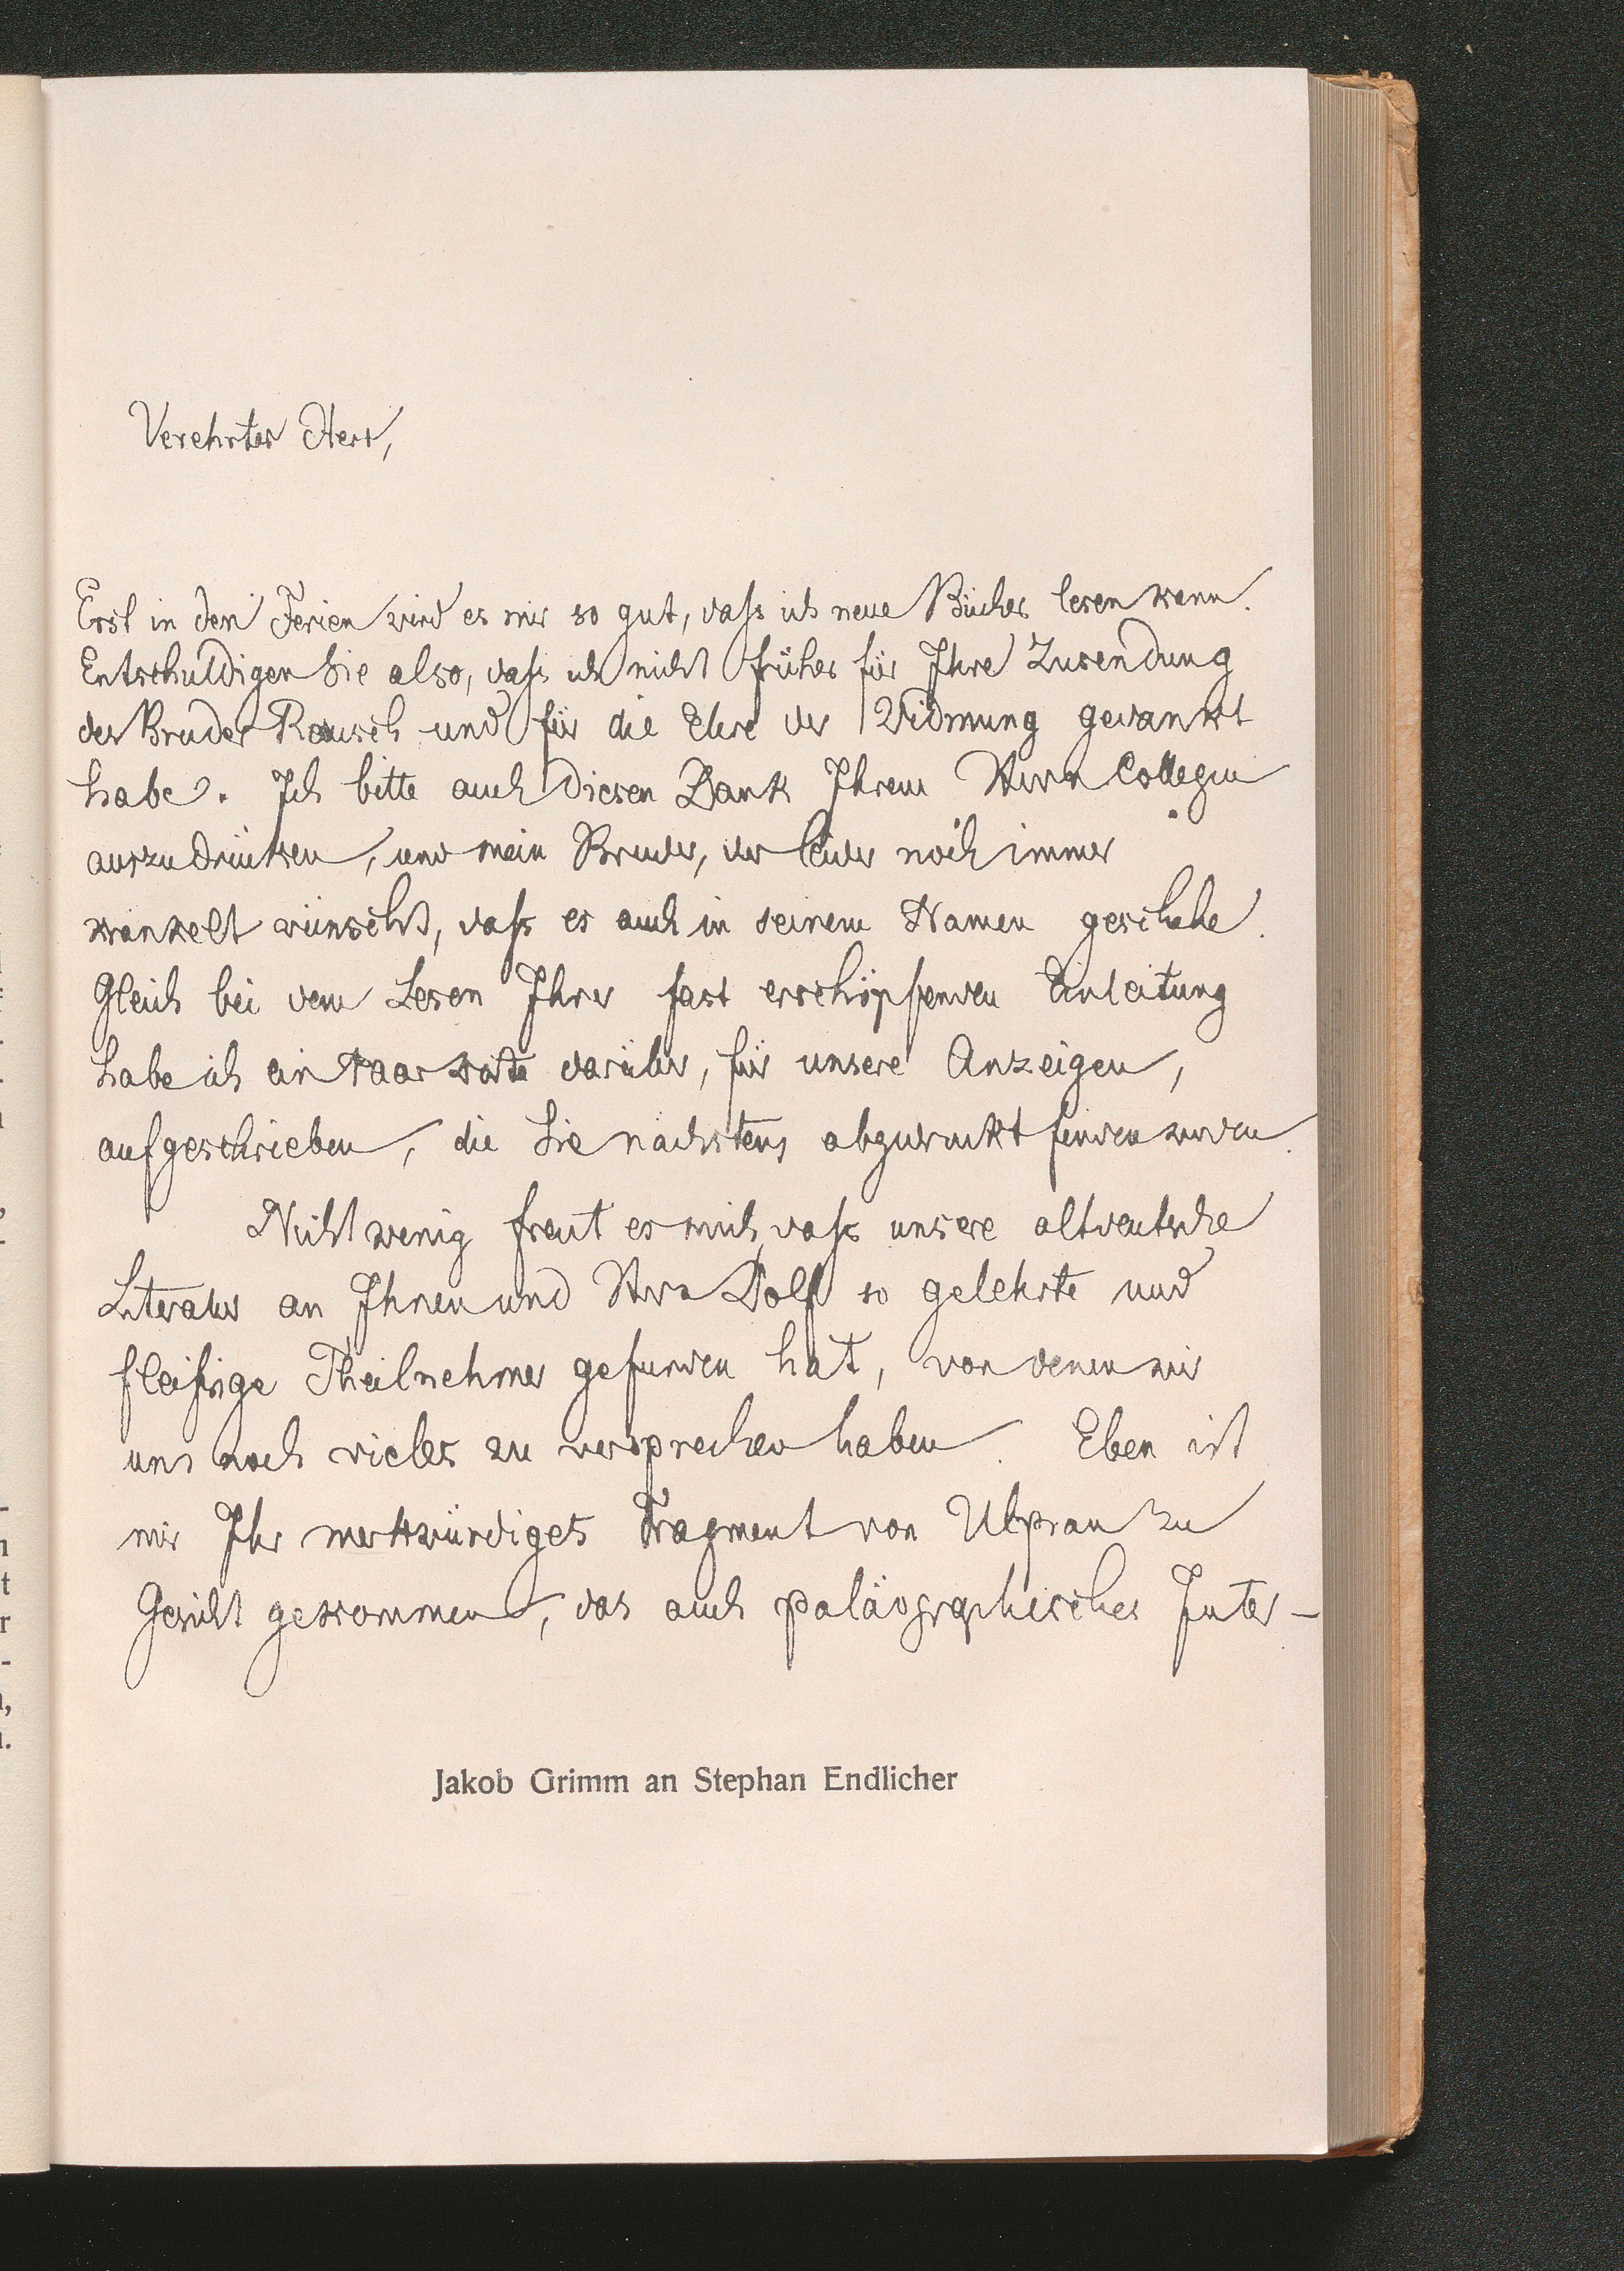 Verehrter Herr,
Erst in den Ferien wird es mir so gut, daß ich neue Bücher lesen kann.
Entschuldigen Sie also, daß ich nicht früher für Ihre Zusendung
des Bruder Rausch und für die Ehre der Widmung gedankt
habe. Ich bitte auch diesen Dank Ihrem Herrn Collegen
auszudrücken, und mein Bruder, der leider noch immer
kränkelt wünscht, daß es auch in seinem Namen geschehe.
Gleich bei dem Lesen Ihrer fast erschöpfenden Einleitung
habe ich ein Paar Worte darüber, für unsere Anzeigen,
aufgeschrieben, die Sie nächstens abgedruckt finden werden.
Nicht wenig freut es mich, daß unsere altdeutsche
Literatur an Ihnen und Hrn Wolf so gelehrte und
fleißige Theilnehmer gefunden hat, von denen wir
uns noch vieles zu versprechen haben. Eben ist
mir Ihr merkwürdiges Fragment von Ulpian zu
Gesicht gekommen, das auch paläographisches Inter-
Jakob Grimm an Stephan Endlicher
n
t
r
-
,
.